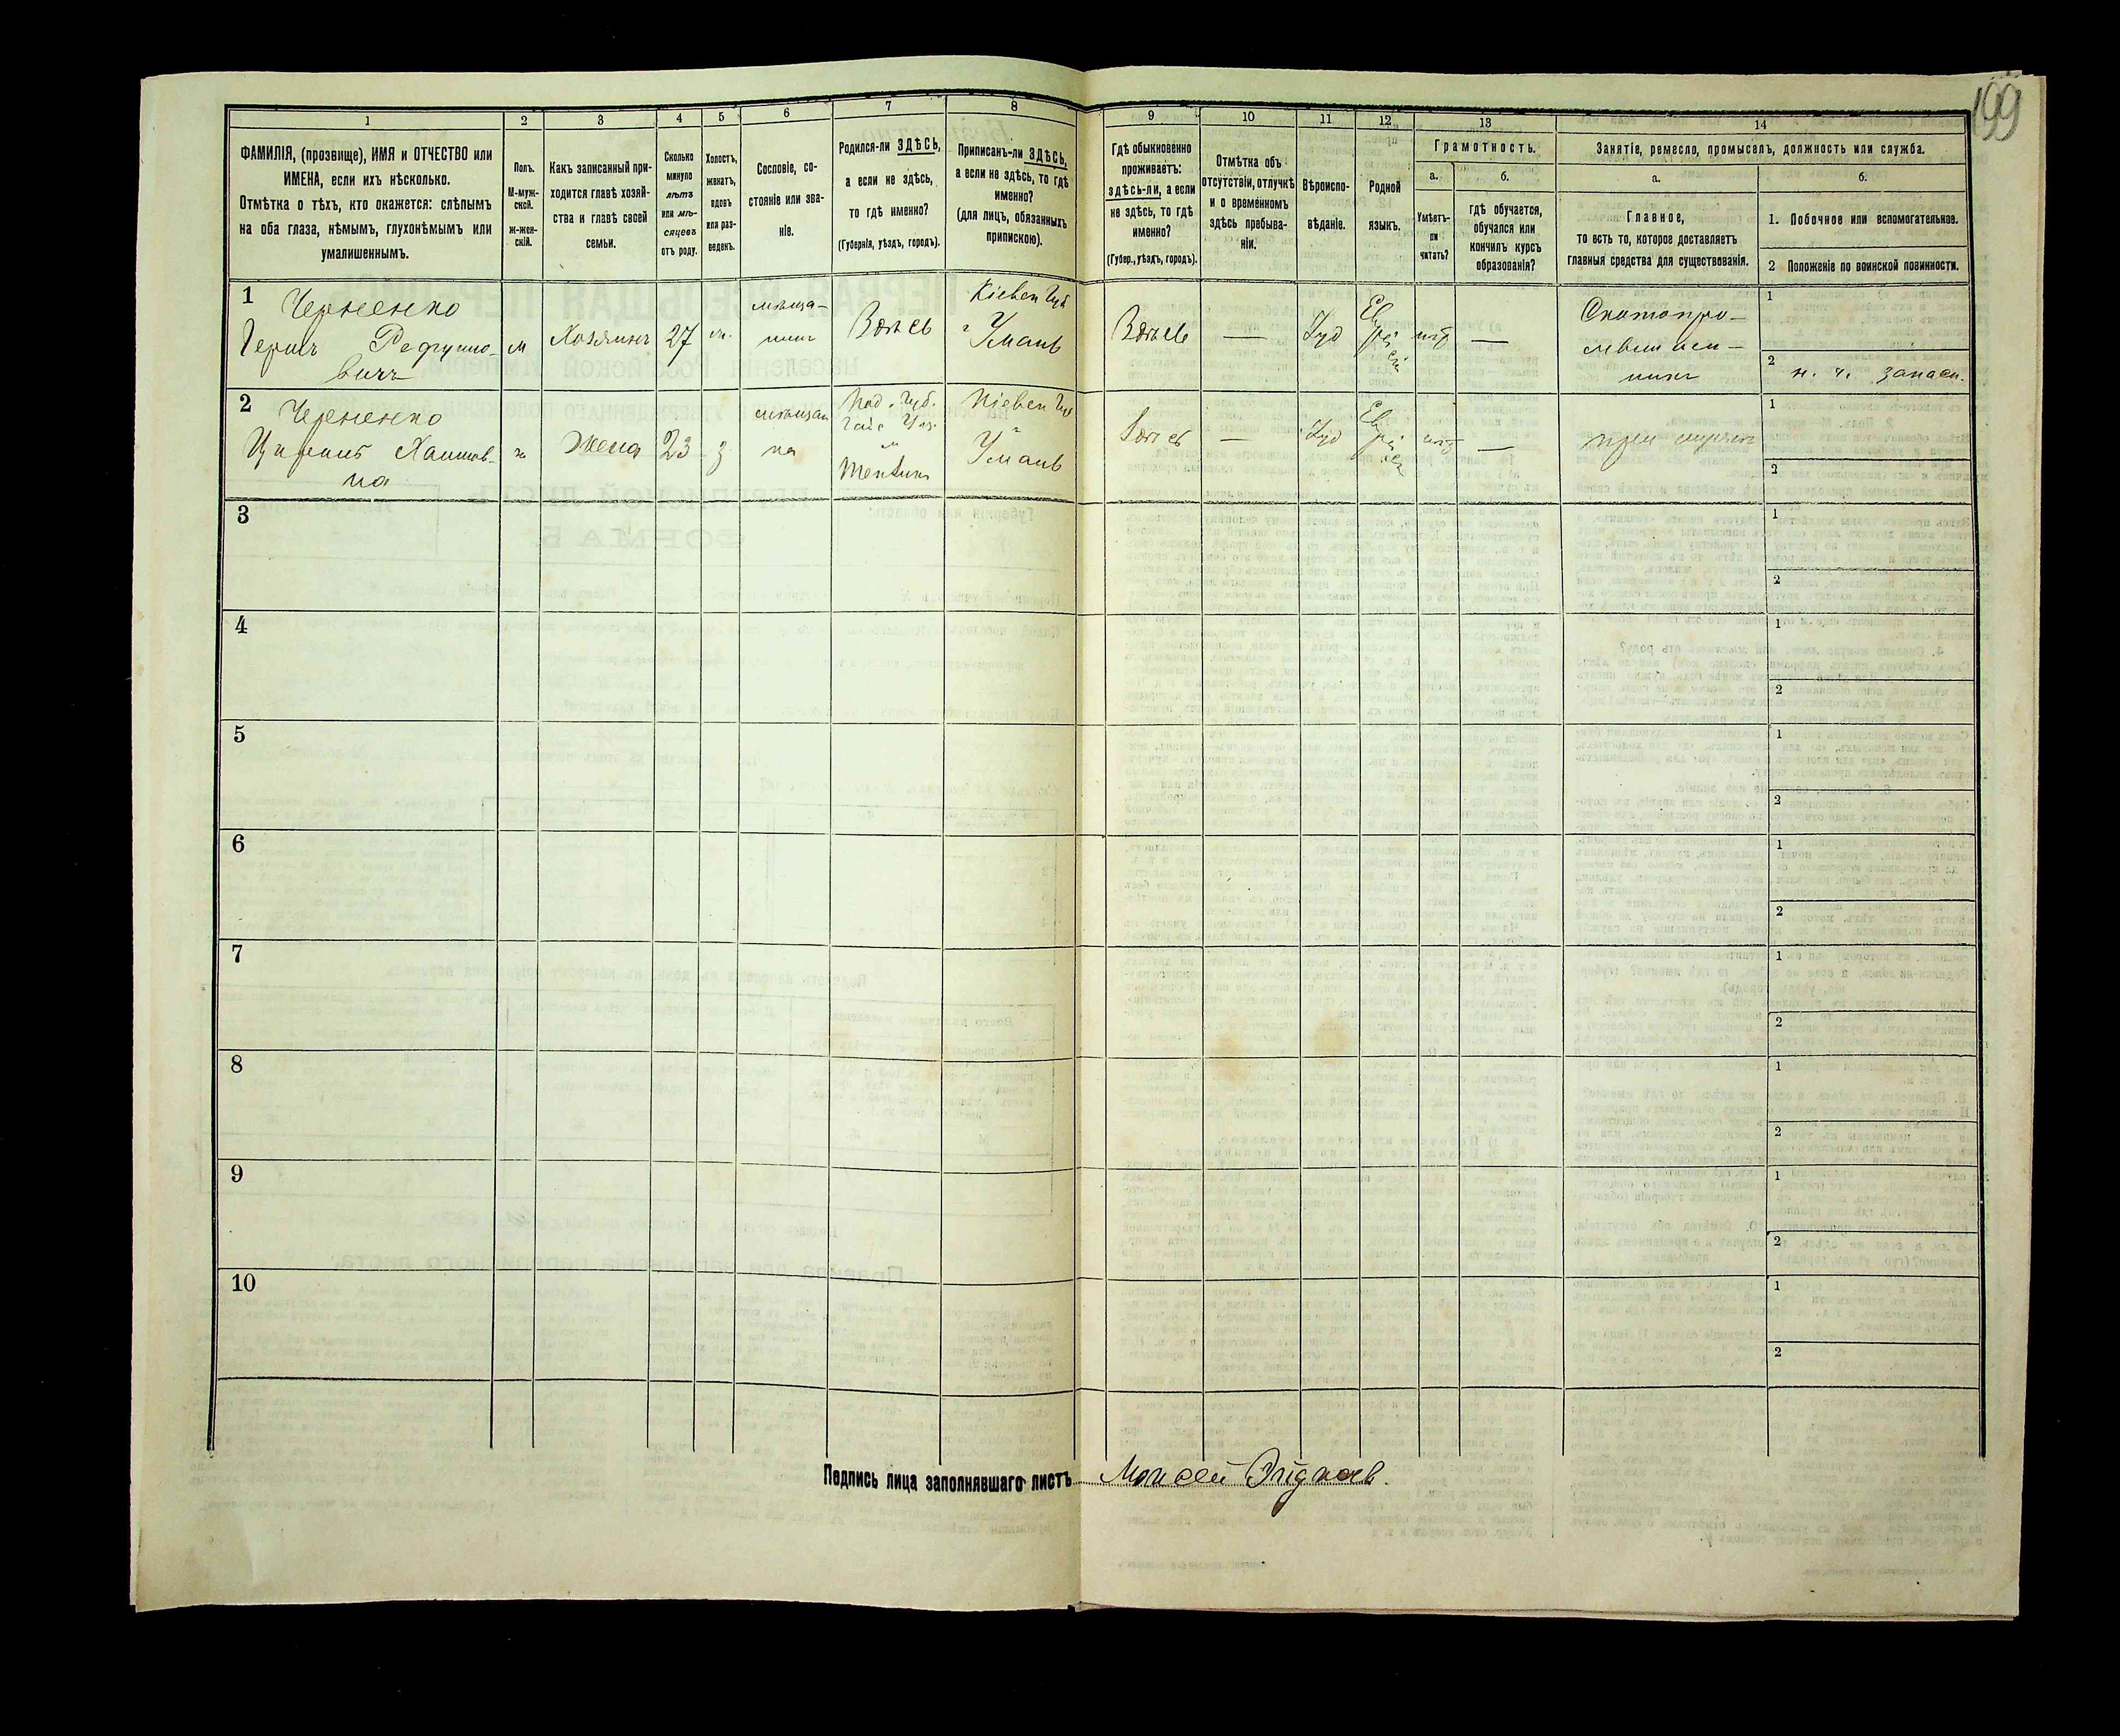 199
1
2
3
4
5
6
7
8
9
10
11
12
13
14
ФАМИЛІЯ, (прозвище), ИМЯ и ОТЧЕСТВО или
ИМЕНА, если ихъ нѣсколько.
Отмѣтка о тѣхъ, кто окажется: слѣпымъ
на оба глаза, нѣмымъ, глухонѣмымъ или
умалишеннымъ.
Полъ.
М-муж-
ской.
ж-жен-
скій.
Какъ записанный при-
ходится главѣ хозяй-
ства и главѣ своей
семьи.
Сколько
минуло
лѣтъ
или мѣ-
сяцевъ
отъ роду.
Холостъ,
женатъ,
вдовъ
или раз-
веденъ.
Сословіе, со-
стояніе или зва-
ніе.
Родился-ли ЗДѢСЬ,
а если не здѣсь,
то гдѣ именно?
(Губернія, уѣздъ, городъ).
Приписанъ-ли ЗДѢСЬ,
а если не здѣсь, то гдѣ
именно?
(для лицъ, обязанныхъ
припискою).
Гдѣ обыкновенно
проживаетъ:
здѣсь-ли, а если
не здѣсь, то гдѣ
именно?
(Губер., уѣздъ, городъ).
Отмѣтка объ
отсутствіи, отлучкѣ
и о временномъ
здѣсь пребыва-
ніи.
Вѣроиспо-
вѣданіе.
Родной
языкъ.
Грамотность.
а.
б.
Умѣетъ-
ли
читать?
гдѣ обучается,
обучался или
кончилъ курсъ
образованія?
Занятіе, ремесло, промыселъ, должность или служба.
а.
б.
Главное,
то есть то, которое доставляетъ
главныя средства для существованія.
1. Побочное или вспомогательное.
2 Положеніе по воинской повинности.
1
Черненко
м
Хозяинъ
27
мѣща-
нинъ
Здѣсь
Кіевск Губ
Умань
Здѣсь
—
Іуд
Еврейскій
—
Скотопро-
мышлен-
никъ
1
2
2
Черненко
ж
Жена
23
з
мѣщан
ка
Под. Губ.
Гайс Уѣз.
Кіевск Губ
Умань
Здѣсь
—
Іуд
Еврейскій
—
при мужѣ
1
2
3
1
2
4
1
2
5
1
2
6
1
2
7
1
2
8
1
2
9
1
2
10
1
2
Подпись лица заполнявшаго листъ
Моисей